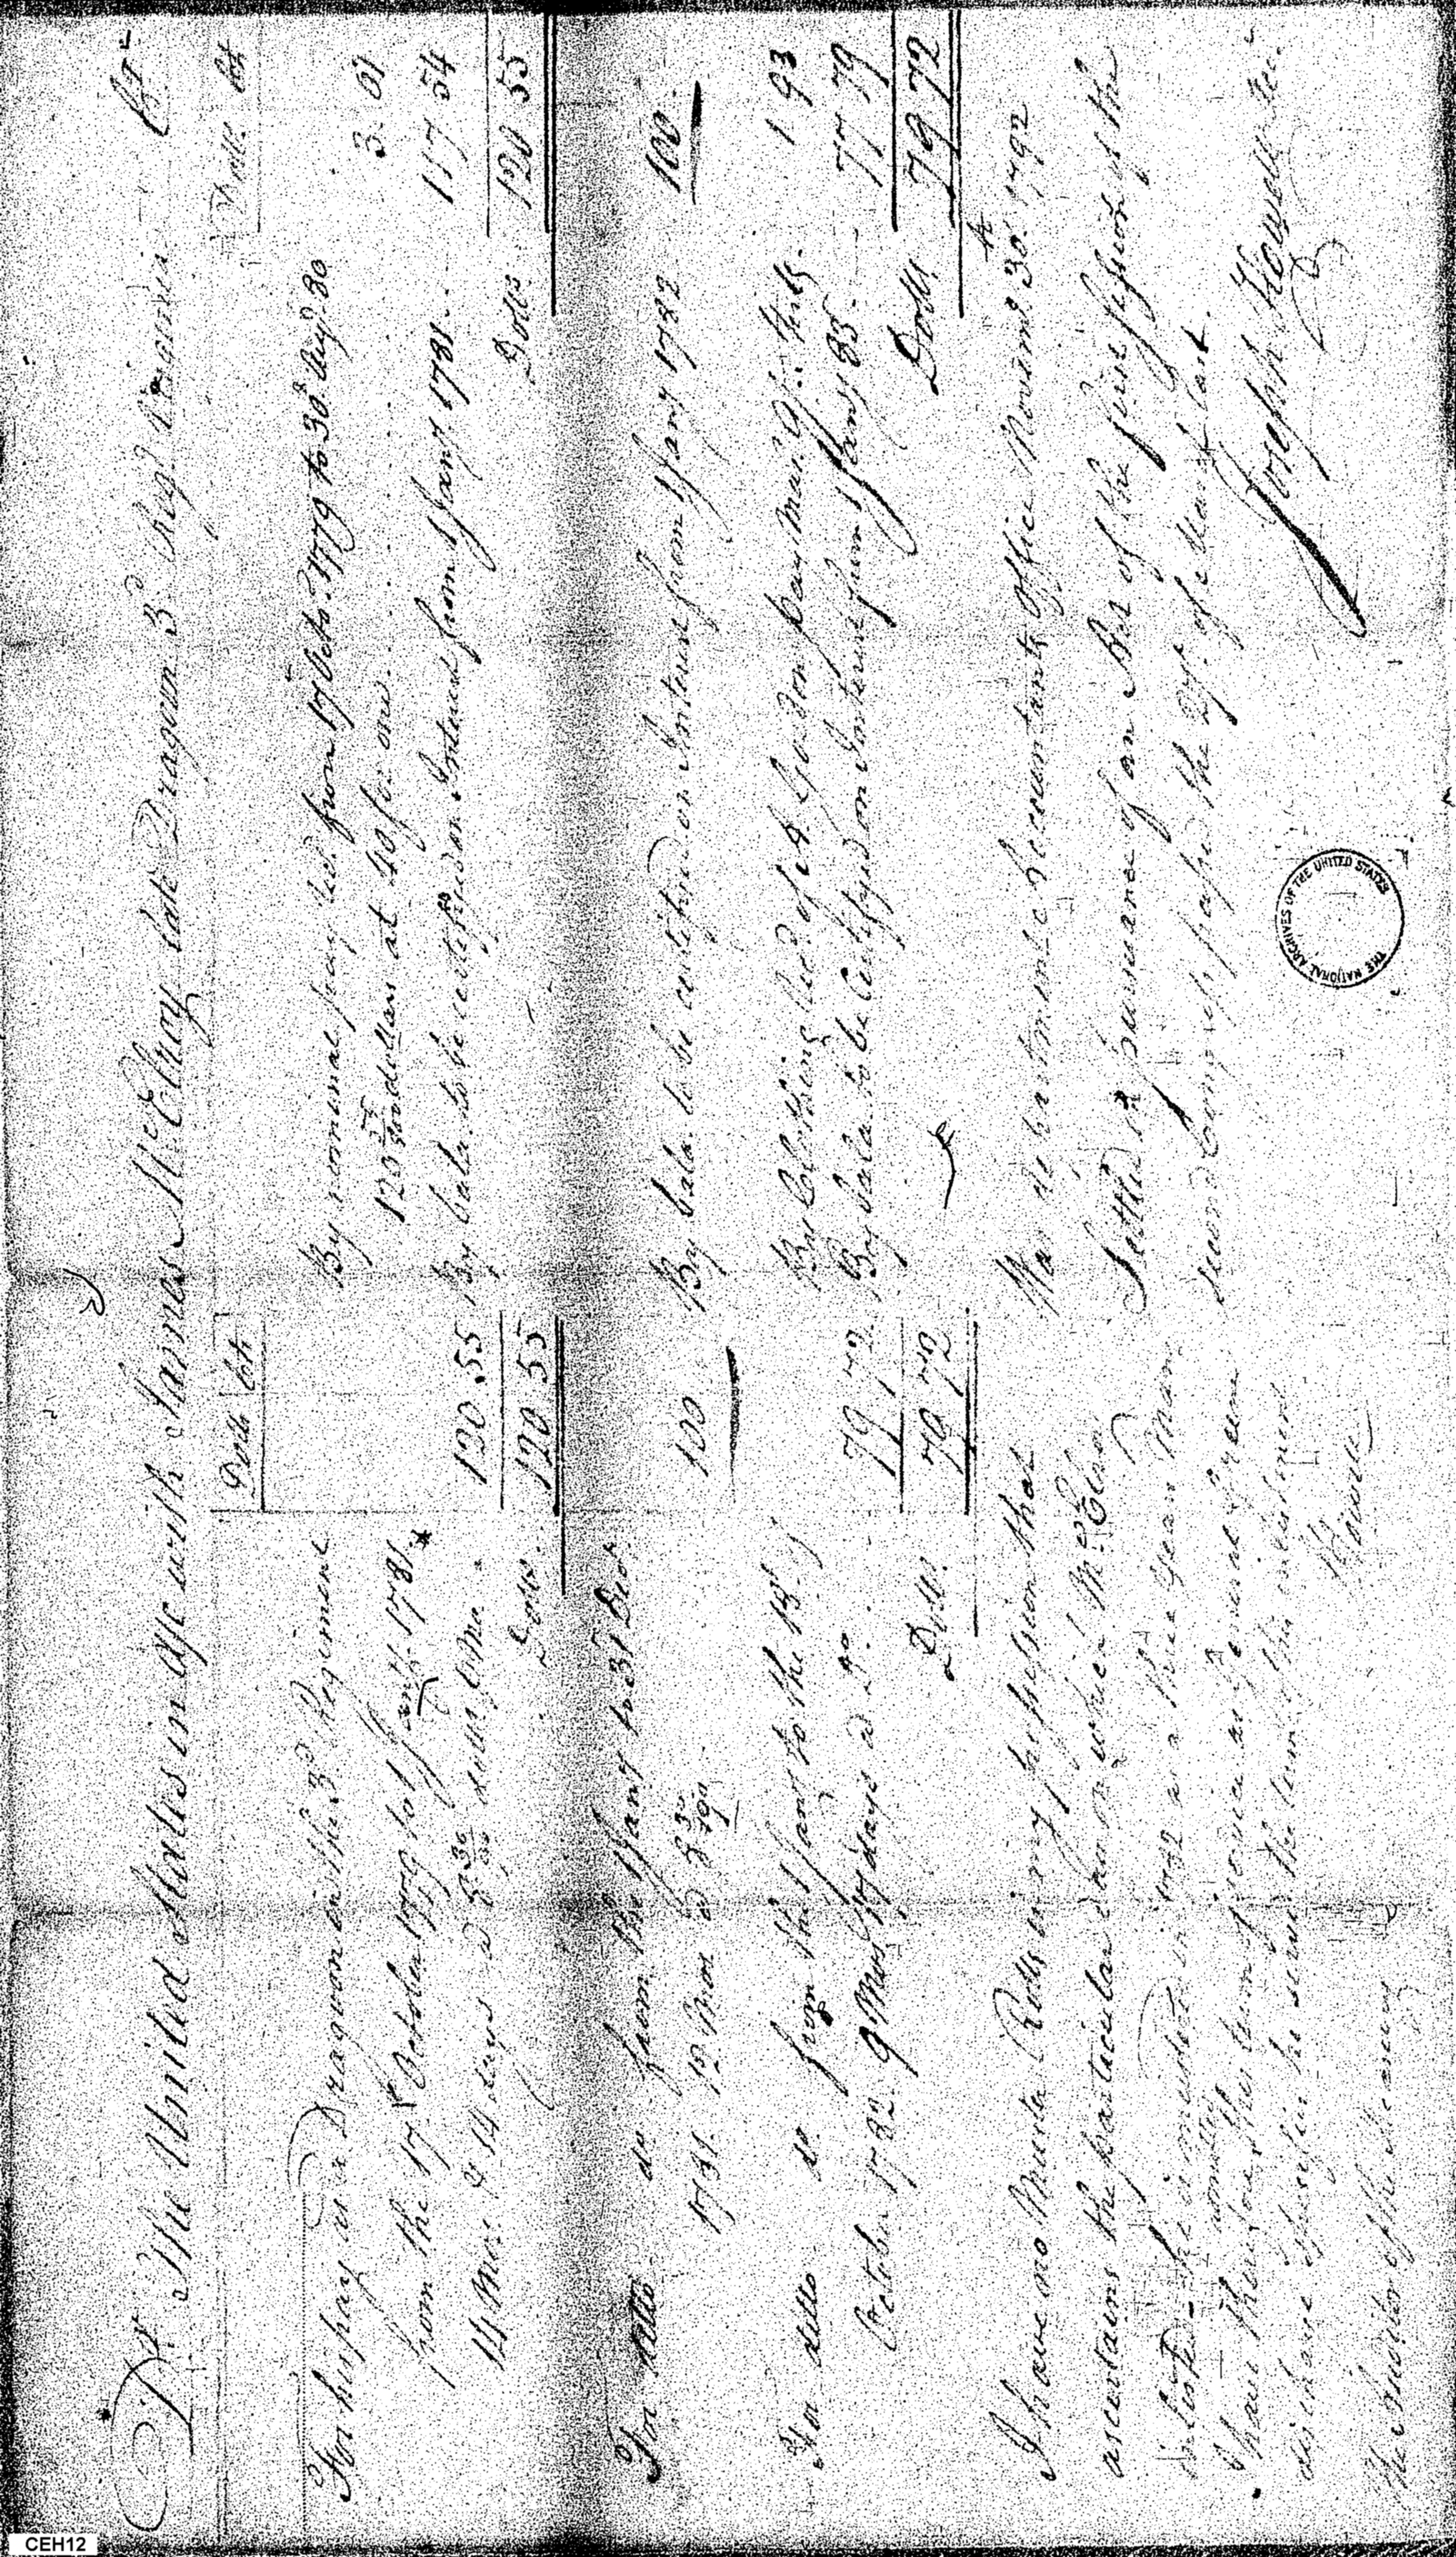 Dr. The United States in a/c with James McElroy late Dragoon 3d Regt Dragoons Cr.
Dolls Cts
Dolls Cts
For his pay as a Dragoon in the 3d Regiment
from the 17th October 1779 to 1 Jany 1781
14 Mos & 14 days @ 8 30/90 dolls 120.55
Dolls. 120 55
By nominal pay recd from 17 Octo. 1779 to 30th Augt 80
120 dollars at 40 for one 3. 01
By bala. to be certifyed on Interest from 1 Jany 1781 117 54
Dolls. 120 55
For ditto do from the 1 Jany to 31 Decr
1781. 12 Mos @ 8 30/90 100
By bala. to be certifyed on Interest from 1 Jany 1782 100
For ditto do. from the 1 Jany to the 18th of
October 1782. 9 Mos 17 days @ do. 79 72
Dolls. 79 72
By Clothing Recd of A Gordon pay Mar. 1 93
By bala. to be Certifyed on Interest from 1 Jany 83. 77 79
Dolls. 79 72
I have no Muster Rolls in my possession that
ascertains the particular days on which McElroy
inlisted he is mustered in 1782 as a three Years Man
I have therefore admitted his term of service
discharge specifies he served the term of his inlistment
The Auditor of the Treasury
War department Accountants Office Novemr. 30th 1792
Settled in pursuance of an Act of the first Session of the
second Congress passed the 27th of March last.
Joseph Howell
THE NATIONAL ARCHIVES OF THE UNITED STATES
CEH12